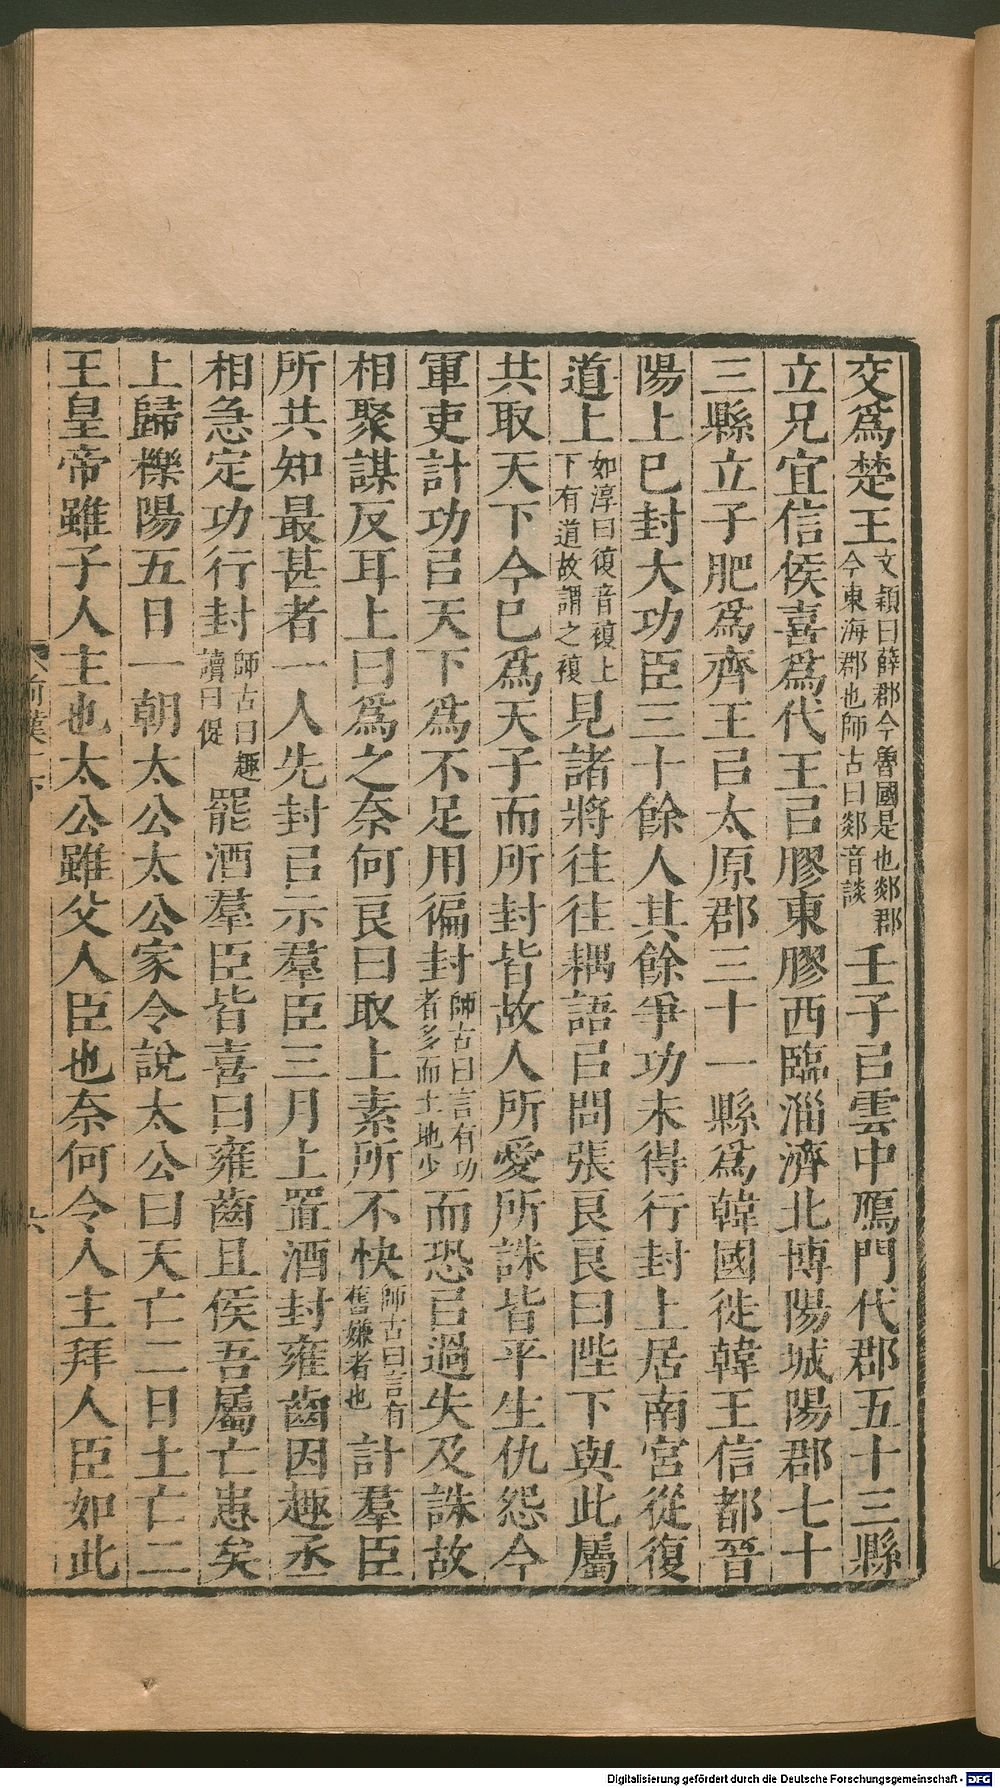 交爲楚王文穎曰薛郡今魯國是也郯郡今東海郡也師古曰郯音談壬子㠯雲中鴈門代郡五十三縣
立兄宜信侯喜爲代王㠯膠東膠西臨淄濟北博陽城陽郡七十
三縣立子肥爲齊王㠯太原郡三十一縣爲韓國徙韓王信都晉
陽上已封大功臣三十餘人其餘爭功未得行封上居南宮從復
道上如淳曰復音複上下有道故謂之複見諸將往往耦語㠯問張良良曰陛下與此屬
共取天下今已爲天子而所封皆故人所愛所誅皆平生仇怨今
軍吏計功㠯天下爲不足用徧封師古曰言有功者多而土地少而恐㠯過失及誅故
相聚謀反耳上曰爲之奈何良曰取上素所不快師古曰言有舊嫌者也計羣臣
所共知最甚者一人先封㠯示羣臣三月上置酒封雍齒因趣丞
相急定功行封師古曰趣讀曰促罷酒羣臣皆喜曰雍齒且侯吾屬亡患矣
上歸櫟陽五日一朝太公太公家令說太公曰天亡二日土亡二
王皇帝雖子人主也太公雖父人臣也奈何令人主拜人臣如此
前漢一下
六
Digitalisierung gefördert durch die Deutsche Forschungsgemeinschaft - DFG